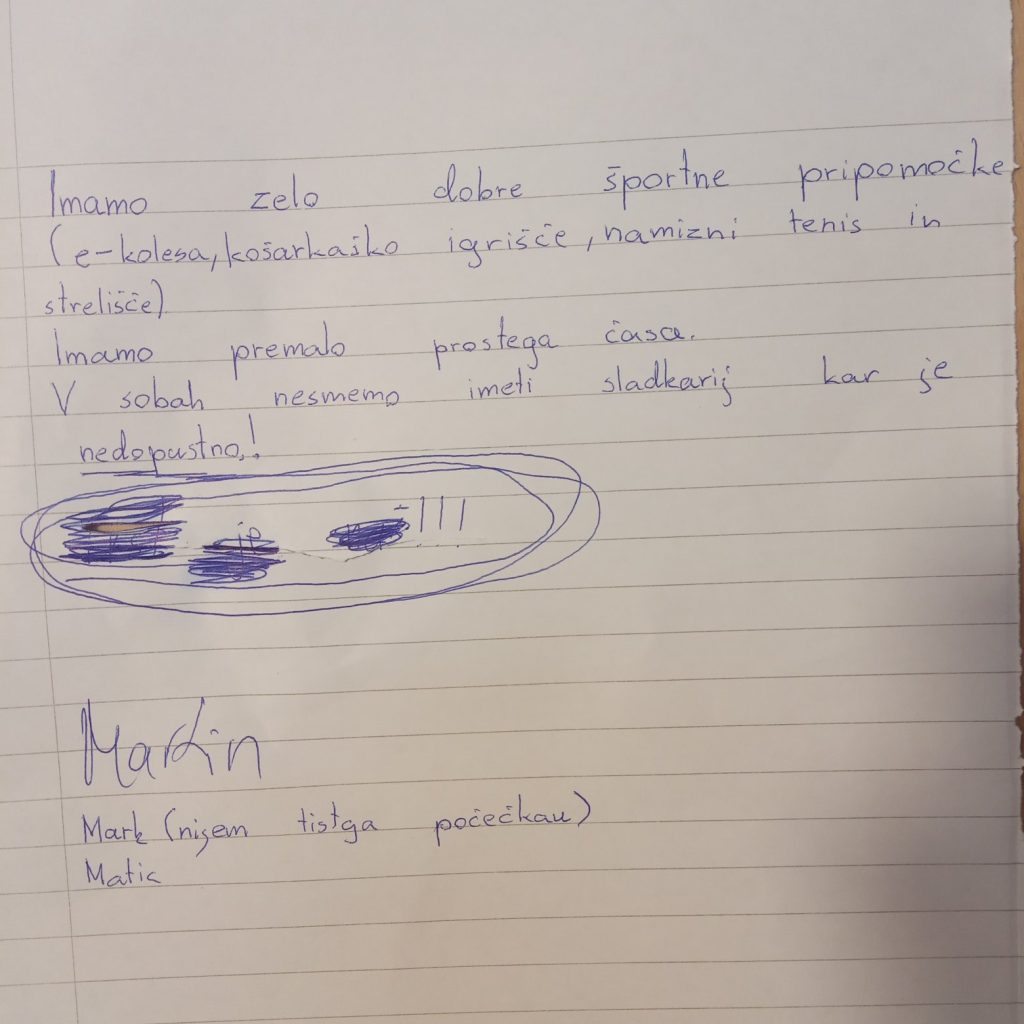 Imamo zelo dobre športne pripomočke
(e-kolesa, košarkaško igrišče, namizni tenis in
strelišče)
Imamo premalo prostega časa.
V sobah nesmemo imeti sladkarij kar je
nedopustno,!
je !!!
Martin
Mark (nisem tistga počečkau)
Matic